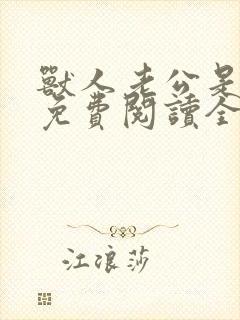 獸人老公是
免費閱讀全
江浪莎